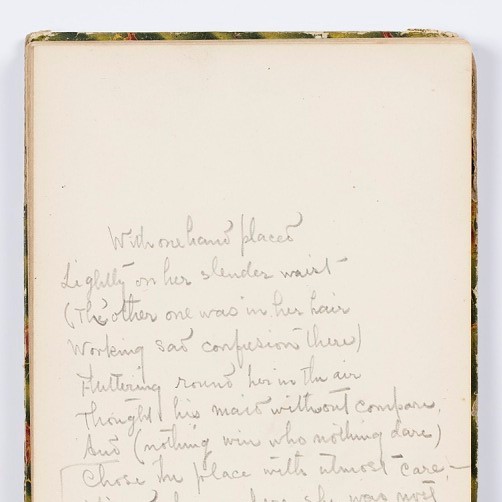 With one hand placed
Lightly on her slender waist
(The other one was in her hair
Working sad confusion there)
Fluttering round her in the air
Thought his maid without compare,
And (nothing win who nothing dare)
Chose the place with utmost care;—
she was most